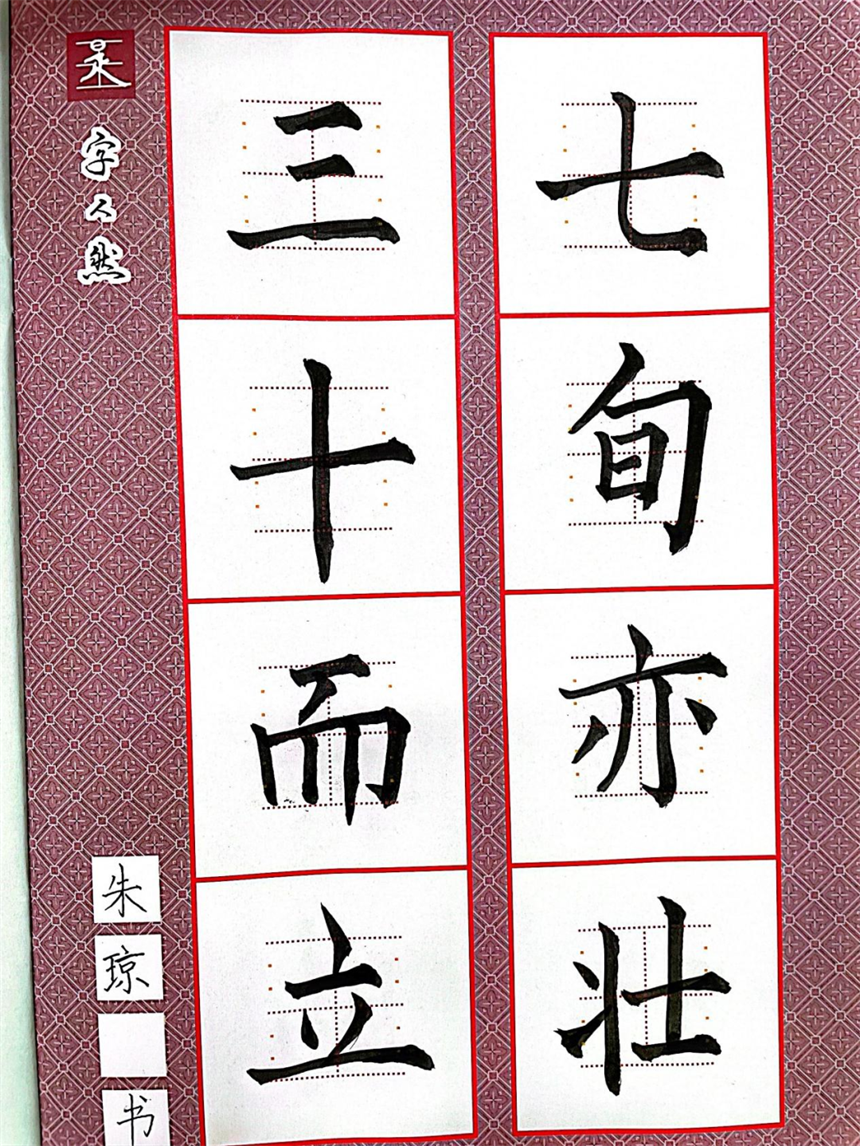 七旬亦壮
三十而立
字人然
朱琼 书